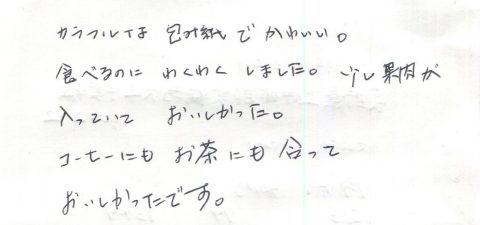 カラフルな包み紙でかわいい。
食べるのにわくわくしました。少し果肉が
入っていておいしかった。
コーヒーにもお茶にも合って
おいしかったです。